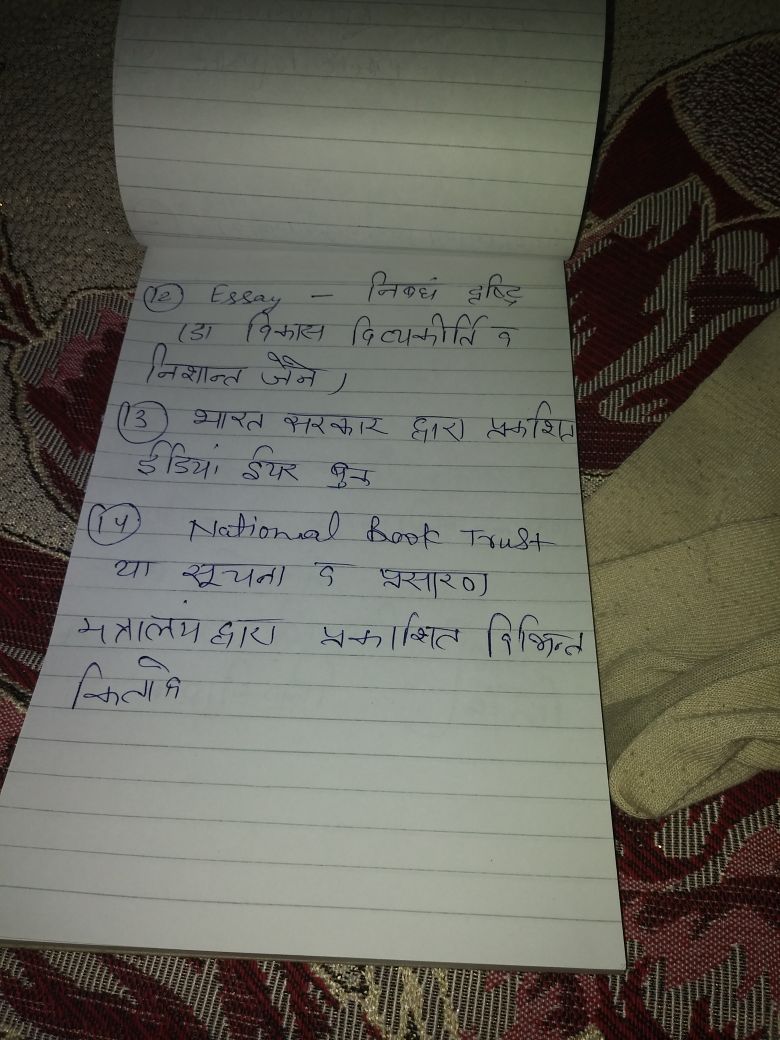 (12) Essay - निबधं दृष्टि
(डा विकास दिव्यकीर्ति व
निशान्त जैन)
(13) भारत सरकार द्वारा प्रकाशित
ईडियां ईयर बुक
(14) National Book Trust
या सूचना व प्रसारण
मत्रालयं द्वारा प्रकाशित विभिन्न
किताबे